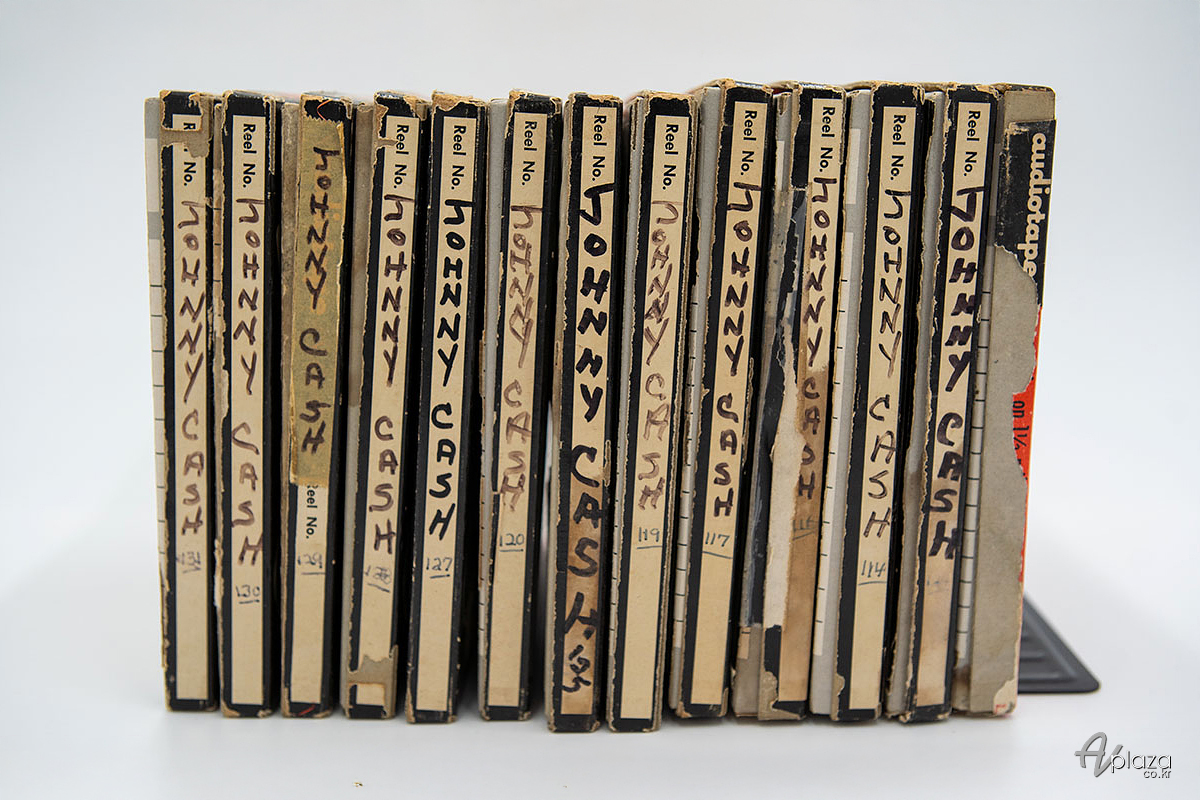 Reel No. JOHNNY CASH 131
Reel No. JOHNNY CASH 130
JOHNNY CASH Reel No. 129
Reel No. JOHNNY CASH
Reel No. JOHNNY CASH 127
Reel No. JOHNNY CASH 120
Reel No. JOHNNY CASH
Reel No. JOHNNY CASH 119
Reel No. JOHNNY CASH 117
Reel No. JOHNNY CASH 116
Reel No. JOHNNY CASH 114
Reel No. JOHNNY CASH
audiotape
on 1½
AVplaza
co.kr